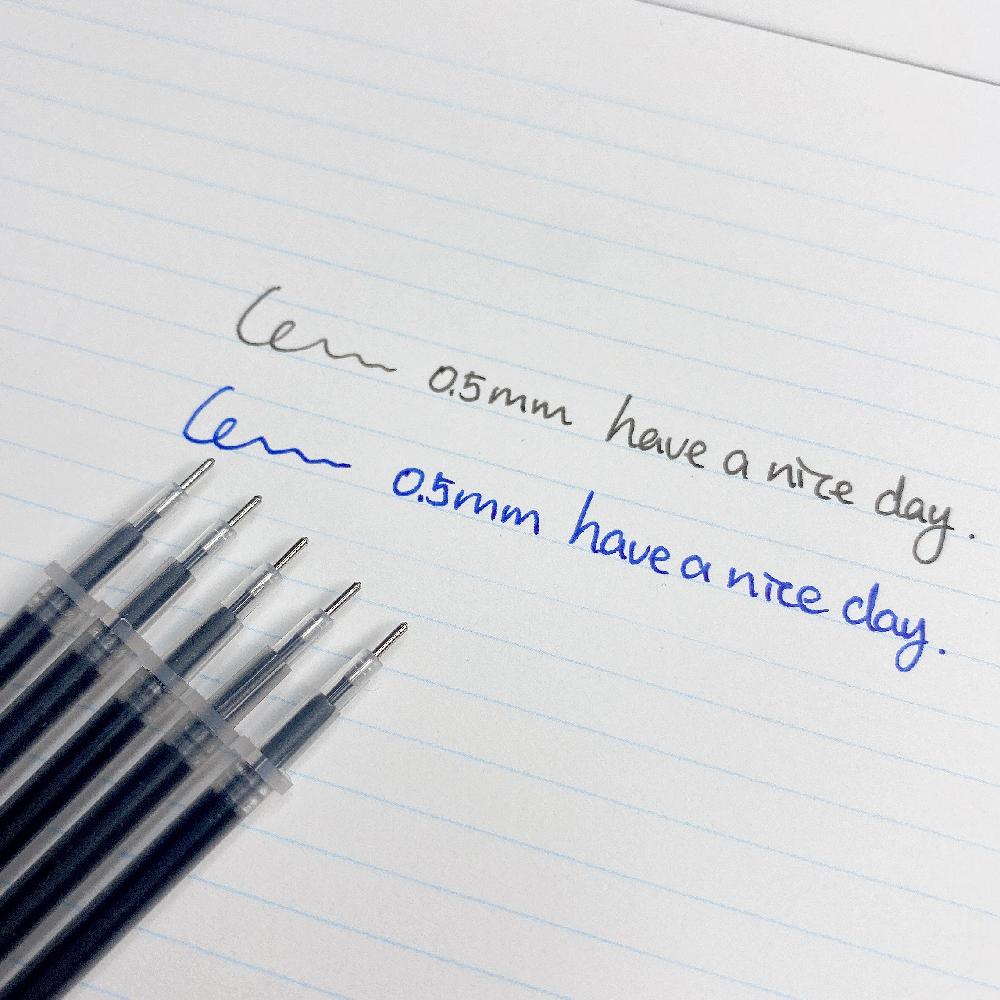 0.5mm have a nice day.
0.5mm have a nice day.